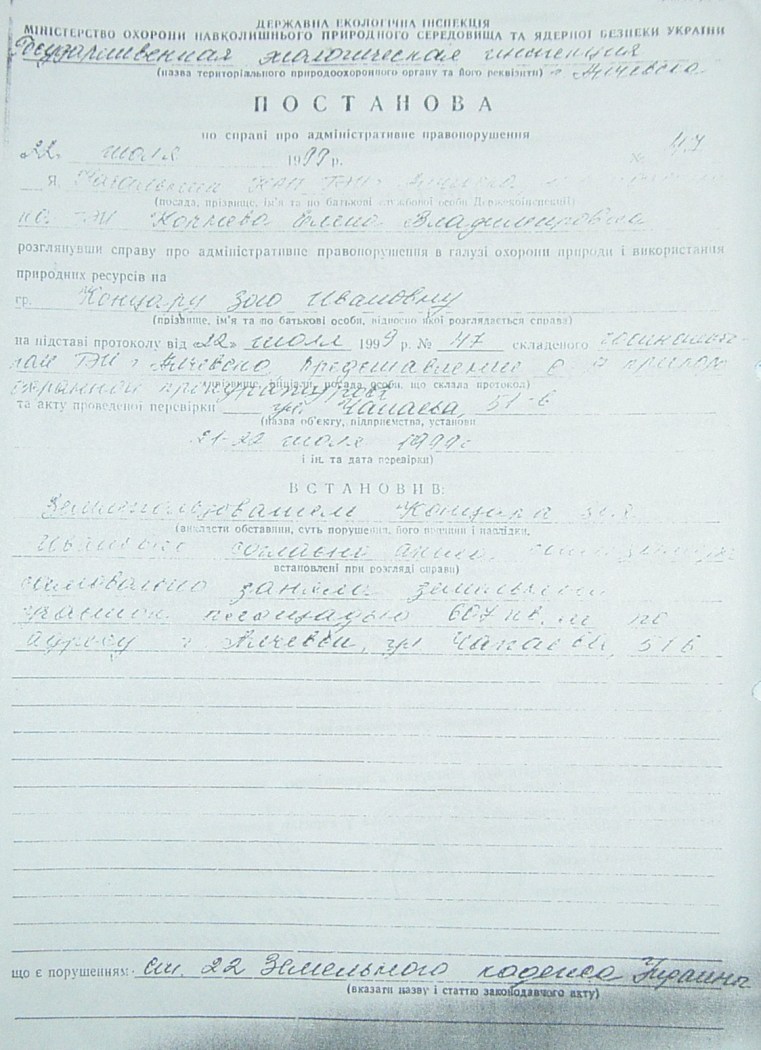 ДЕРЖАВНА ЕКОЛОГІЧНА ІНСПЕКЦІЯ
МІНІСТЕРСТВО ОХОРОНИ НАВКОЛИШНЬОГО ПРИРОДНОГО СЕРЕДОВИЩА ТА ЯДЕРНОЇ БЕЗПЕКИ УКРАЇНИ
Государственная экологическая инспекция
(назва територіального природоохоронного органу та його реквізити) г Алчевска
ПОСТАНОВА
по справі про адміністративне правопорушення
22 июля 1999 р. № 47
Я, Начальник ТЭИ г Алчевска,
(посада, прізвище, ім'я та по батькові службової особи Держекоінспекції)
ТЭИ Елена Владимировна
розглянувши справу про адміністративне правопорушення в галузі охорони природи і використання
природних ресурсів на
гр. Концару Зою Ивановну
(прізвище, ім'я та по батькові особи, відносно якої розглядається справа)
на підставі протоколу від „22" июля 1999 р. № 47 складеного
ТЭИ г Алчевска
(прізвище, ініціали, посада особи, що склала протокол)
та акту проведеної перевірки ул. Чапаева, 51-б
(назва об'єкту, підприємства, установи
21-22 июля 1999г
і ін. та дата перевірки)
ВСТАНОВИВ:
Землепользователем
(викласти обставини, суть порушення, його причини і наслідки,
согласно
встановлені при розгляді справи)
самовольно занят земельный
участок площадью 607 кв. м по
адресу г Алчевск, ул Чапаева, 51б
що є порушенням: Ст. 22 Земельного кодекса Украины
(вказати назву і статтю законодавчого акту)